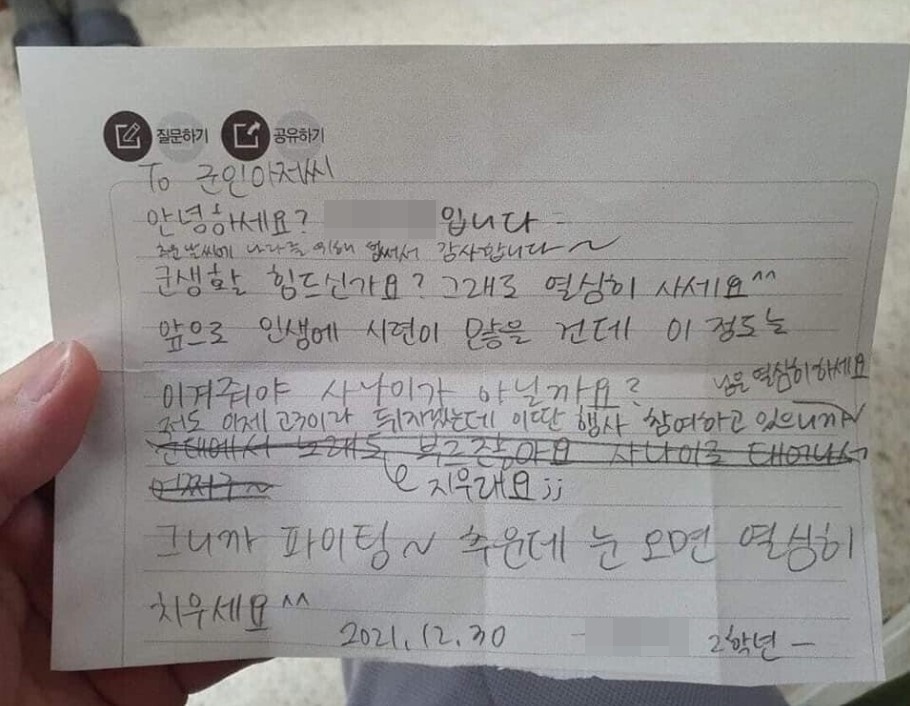 질문하기 공유하기
To 군인아저씨
안녕하세요? 입니다
추운 날씨에 나라를 위해 힘써서 감사합니다~
군생활 힘드신가요? 그래도 열심히 사세요^^
앞으로 인생에 시련이 많을 건데 이 정도는
이겨줘야 사나이가 아닐까요?
저도 이제 고3이라 뒤지겠는데 이딴 행사 참여하고 있으니까
님은 열심히하세요
군대에서 노래도 부르잖아요 사나이로 태어나서
어쩌구~
지우래요;;
그니까 파이팅~ 추운데 눈 오면 열심히
치우세요^^
2021.12.30 - 2학년 -